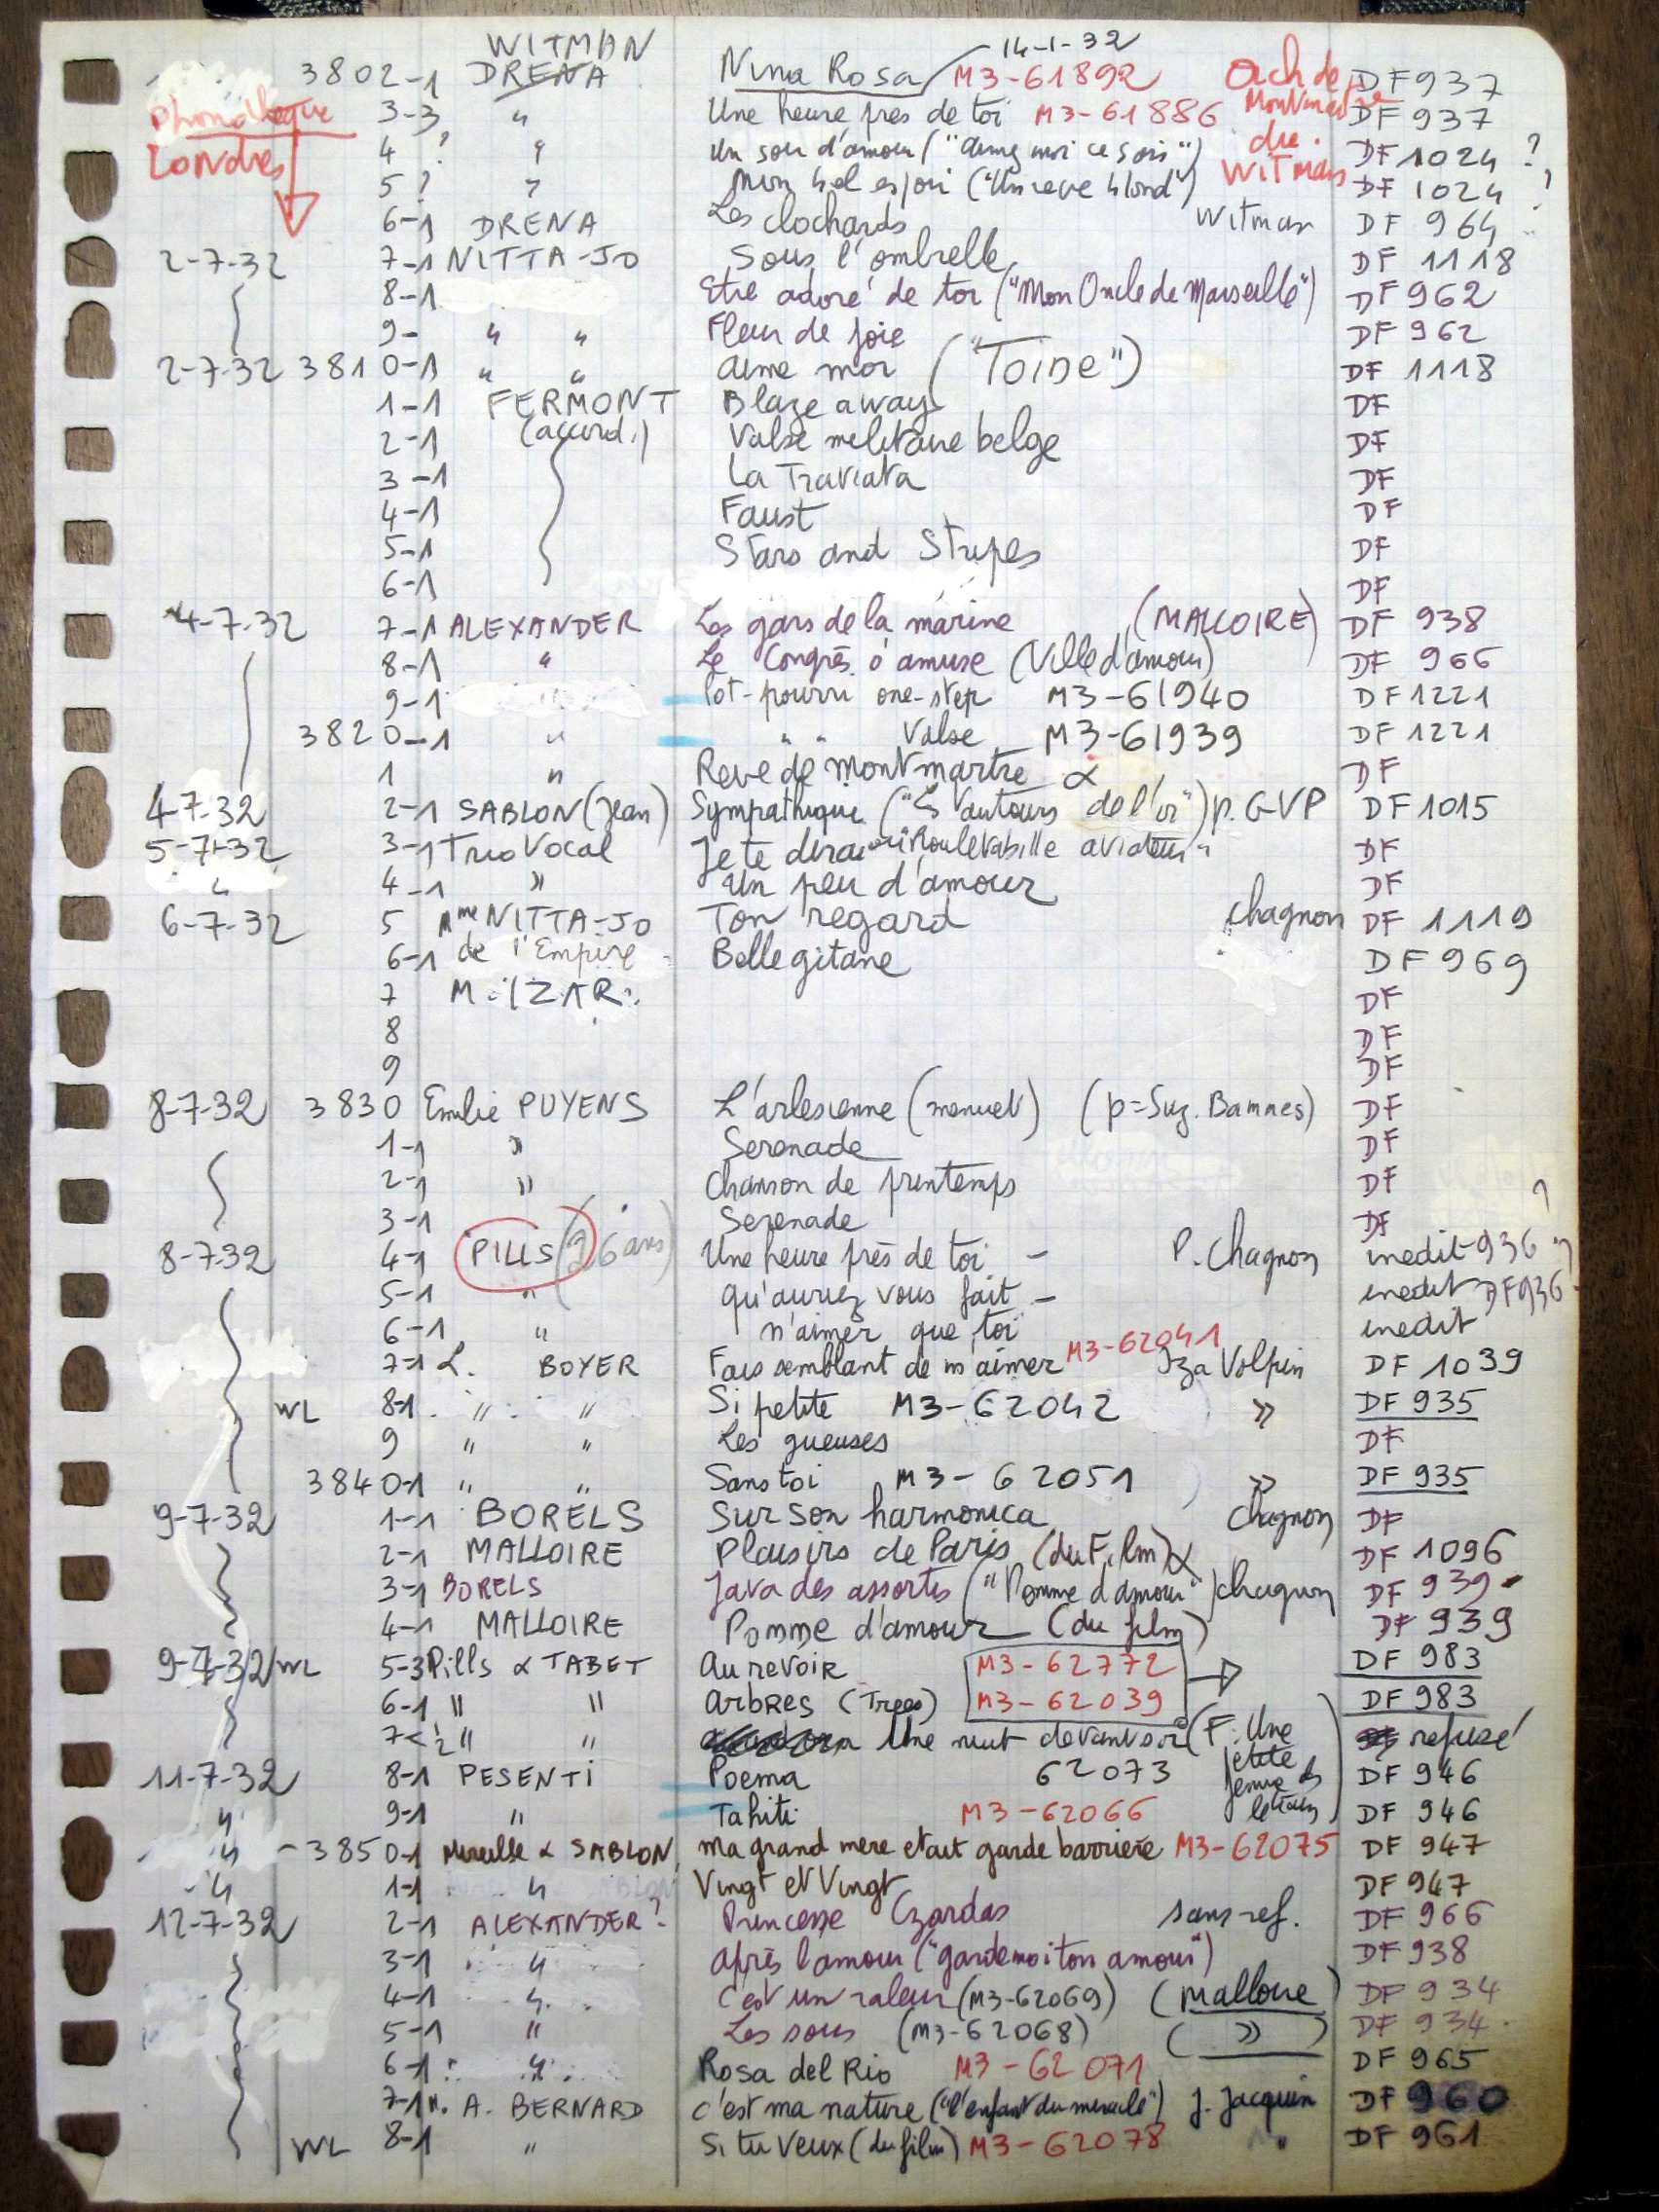 WITMAN
3802-1 DRENA Nina Rosa 14-1-32 M3-61892 Orch de DF 937
Phonothèque 3-3 " Une heure près de toi M3-61886 Montmartre DF 937
Londres 4 ? " Un soir d'amour ("aime moi ce soir") dir. DF 1024 ?
5 ? " Mon bel espoir ("Un reve blond") WITMAN DF 1024 ?
6-1 DRENA Les clochards Witman DF 964
2-7-32 7-1 NITTA-JO Sous l'ombrelle DF 1118
8-1 Etre adoré de toi ("Mon Oncle de Marseille") DF 962
9- " " Fleur de joie DF 962
2-7-32 3810-1 " " aime moi ("Toine") DF 1118
1-1 FERMONT Blaze away DF
2-1 (accord.) Valse militaire belge DF
3-1 La Traviata DF
4-1 Faust DF
5-1 Stars and Stripes DF
6-1 DF
4-7-32 7-1 ALEXANDER Les gars de la marine (MALLOIRE) DF 938
8-1 " Le Congrès s'amuse (Ville d'amour) DF 966
9-1 " Pot-pourri one-step M3-61940 DF 1221
3820-1 " " " Valse M3-61939 DF 1221
1 " Reve de Montmartre α DF
4-7-32 2-1 SABLON (Jean) Sympathique ("Les Vautours de l'or") p. GVP DF 1015
5-7-32 3-1 Trio Vocal Je te dirai "Rouletabille aviateur" DF
" 4-1 » Un peu d'amour DF
6-7-32 5 Mme NITTA-JO Ton regard Chagnon DF 1119
6-1 de l'Empire Belle gitane DF 969
7 M. IZAR. DF
8 DF
9 DF
8-7-32 3830 Emilie PUYENS L'arlesienne (menuet) (p=Suz. Bamnes) DF
1-1 » Serenade DF
2-1 » Chanson de printemps DF
3-1 Serenade DF ?
8-7-32 4-1 PILLS (26 ans) Une heure près de toi - P. Chagnon inedit-936 "?
5-1 " qu'auriez vous fait - inedit DF 936
6-1 " n'aimer que toi inedit
7-1 L. BOYER Fais semblant de m'aimer M3-62041 Iza Volpin DF 1039
WL 8-1 " " Si petite M3-62042 » DF 935
9 " " Les gueuses DF
3840-1 " " Sans toi M3-62051 » DF 935
9-7-32 1-1 BORELS Sur son harmonica Chagnon DF
2-1 MALLOIRE Plaisirs de Paris (du Film) α DF 1096
3-1 BORELS Java des assortis ("Pomme d'amour") Chagnon DF 939
4-1 MALLOIRE Pomme d'amour (du film) DF 939
9-7-32 WL 5-3 Pills & TABET Au revoir M3-62772 DF 983
6-1 " " Arbres (Trees) M3-62039 DF 983
7<1/2 " " Une nuit devant soi (F. Une petite femme ds le train) refusé
11-7-32 8-1 PESENTI Poema 62073 DF 946
" 9-1 " Tahiti M3-62066 DF 946
" -3850-1 Mireille & SABLON ma grand mere etait garde barriere M3-62075 DF 947
" 1-1 " Vingt et Vingt DF 947
12-7-32 2-1 ALEXANDER ? Princesse Czardas sans ref. DF 966
3-1 " Après l'amour ("garde moi ton amour") DF 938
4-1 " C'est un raleur (M3-62069) (Malloire) DF 934
5-1 " Les sous (M3-62068) ( » ) DF 934
6-1 " Rosa del Rio M3-62071 DF 965
7-1 M. A. BERNARD C'est ma nature ("l'enfant du miracle") J. Jacquin DF 960
WL 8-1 " Si tu veux (du film) M3-62078 " DF 961